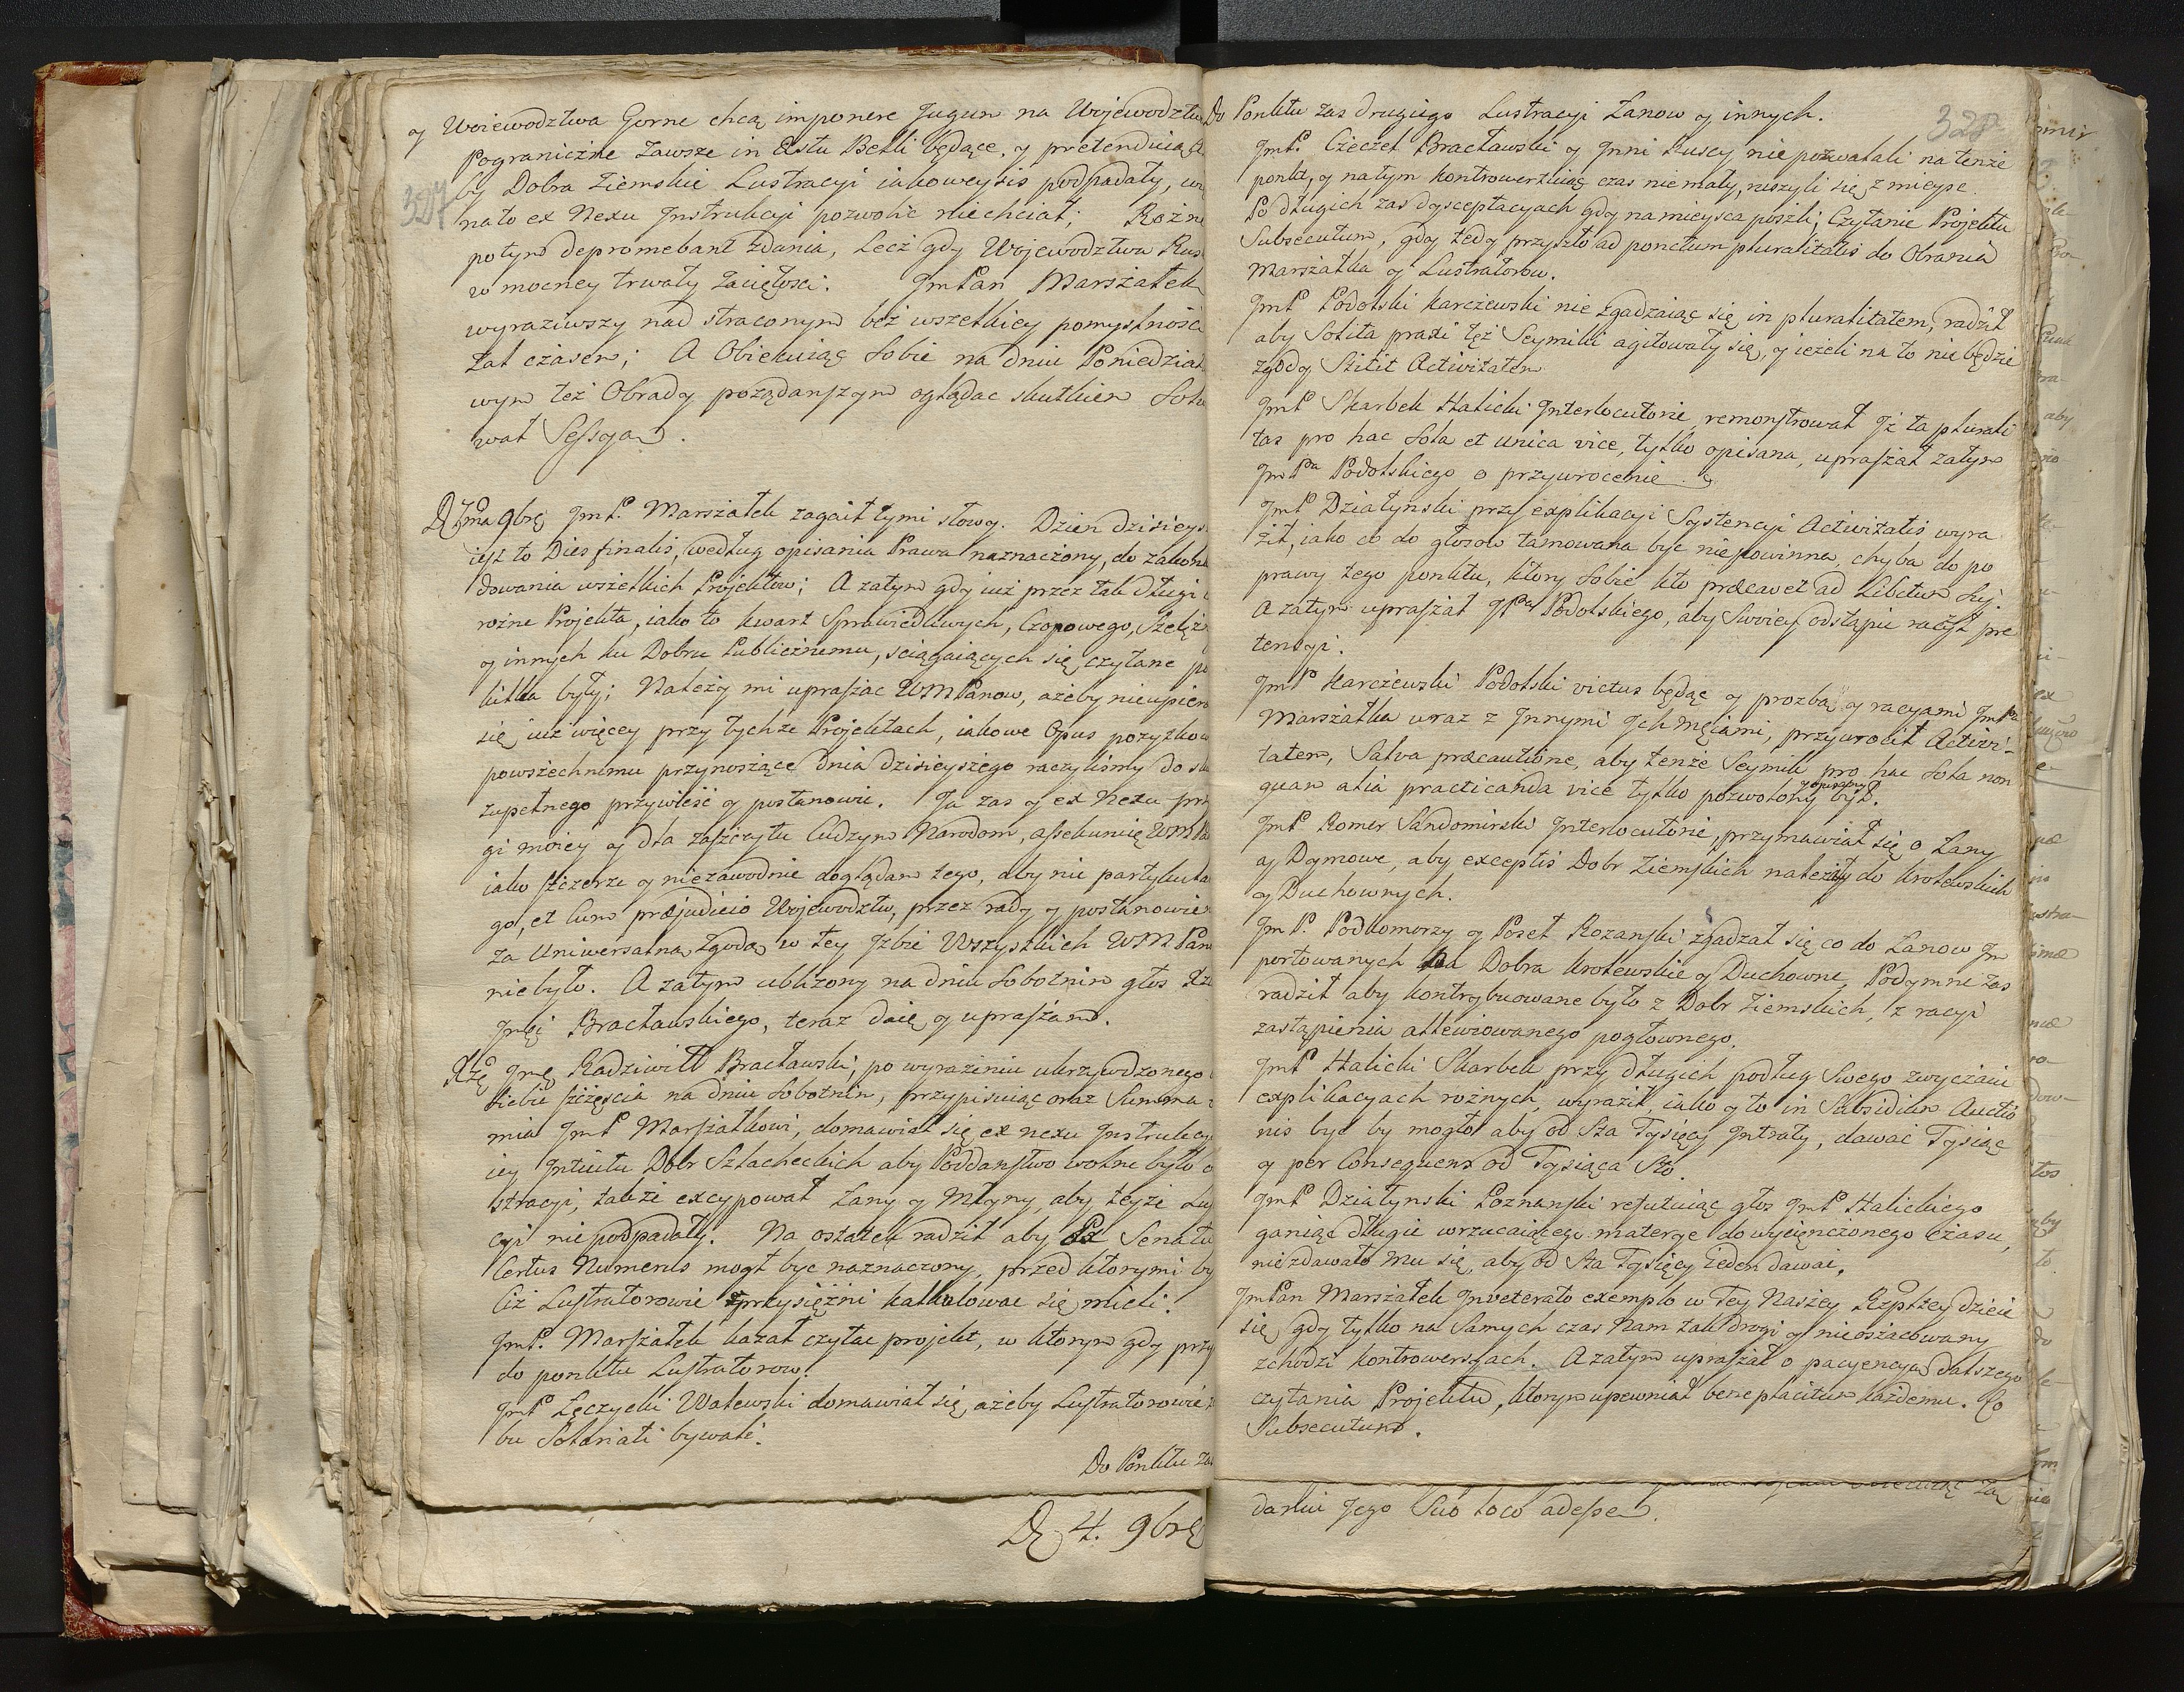 327
y Woiewodztwa Gorne chcą imponere Jugum na Wojewodztwa
Pograniczne zawsze in Æstu Belli będące, y pretenduią a
by Dobra Ziemskie Lustracyi iakoweysis podpadały,
na to ex Nexu Jnstrukcyi pozwolić niechciał; Rożne
potym depromebant zdania, Lecż gdy Wojewodztwa Rus
w mocney trwały zaciętosci. JmPan Marszałek
wyraziwszy nad straconym beż wszelkiey pomyslnosci
żal cżasem; A Obiecuiąc sobie na dniu Poniedział
wym też Obrady pożądanszym oglądac skutkiem Solw
wał Sessyą.
D 7ma 9brȩ JmP. Marszałek zagaił tymi słowy. Dzien dzisieys
iest to Dies finalis, według opisania Prawa naznacżony, do zakon
dowania wszelkich Projektow; A zatym gdy iuż przez tak długi
rożne Projekta, iako to kwart Sprawiedliwych, Czopowego, Szelęż
y innych ku Dobru Publicżnemu, sciągaiących się, czytane po
kilka były; Należy mi uprászac WMPanow, ażeby nieupiera
się iuż więcey przy tychże Projektach, iakowe Opus pożytkow
powszechnemu przynoszące dnia dzisieyszego raczylismy do sku
zupełnego przywiesć y postanowic. Ja zas y ex Nexu prz
gi moiey y dla zasżcżytu Cudzym Narodom, assekuruię WMPa
iako szczerze y niezawodnie doglądam tego, aby nic partykula
go, et Cum præjudicio Wojewodztw, przez rady y postanowien
za Uniwersalną zgodą w tey Jzbie Wszystkich WMPan
niebyło. A zatym ubliżony na dniu Sobotnim głos Xże
Jmści Bracławskiego, teraz daię y uprászam.
Xżę Jmć Radziwiłł Bracławski, po wyrażeniu ukrzywdzonego
siebie szcżęscia na dniu Sobotnim, przypisuiąc oraz Summa
mia JmP Marszałkowi, domawiał się ex nexu Jnstrukcy
iey Jntuitu Dobr Szlacheckich aby Poddanstwo wolne było
stracyi, także excypował Lany y Młyny, aby teyże Lus
cyi niepodpadały. Na ostatek radził aby Ex Senatu
Certus Numerus mogł byc naznaczony, przed ktorymi by
Ciż Lustratorowie przysiężni kalkulowac się mieli.
JmP. Marszałek kazał czytac projekt, w ktorym gdy przy
do ponktu Lustratorow.
JmP Łęczycki Walewski domawiał się, ażeby Lustratorowie
bu Solariati bywali.
Do Ponktu zas
D 4. 9brȩ
328
Do Ponktu zas drugiego Lustracyi Lanow y innych.
JmP. Czeczel Bracławski y Jnni Ruscy nie pozwalali na tenże
ponkt, y natym kontrowertuiąc czas niemały, ruszyli się z mieysc.
Po długich zas dysceptacyach gdy na mieysca poszli; Czytanie Projektu
Subsecutum, gdy tedy przyszło ad punctum pluralitatis do Obrania
Marszałka y Lustratorow.
JmP Podolski Karczewski nie zgadzaiąc się in pluralitatem, radził
aby Solita praxi też Seymiki agitowały się, y ieżeli na to nie będzie
zgody Stitit Activitatem
JmP Skarbek Halicki Jnterlocutorie remonstrował Jż ta plurali
tas pro hac Sola et unica vice, tylko opisana, uprászał zatym
JmPa Podolskiego o przywrocenie.
JmP Działynski przy explikacyi Systencyi Activitatis wyra
ził, iako co do głosow tamowana byc niepowinna, chyba do po
prawy tego ponktu, ktory sobie kto præcavet ad Libitum suj.
A zatym uprászał JPa Podolskiego, aby Swoiey odstąpic raczył pre
tensyi.
JmP Karczewski Podolski victus będąc y prozbą y racyami JmPa
Marszałka wraz z Jnnymi Jch Mściami, przywrocił Activi-
tatem, Salva præcautione, aby tenże Seymik pro hac sola non
quam alia practicanda vice tylko pozwolony y opisany był.
JmP Romer Sandomirski Jnterlocutorie, przymawiał się o Lany
y Dymowe, aby exceptis Dobr Ziemskich należały do Krolewskich
y Duchownych.
JmP. Podkomorzy y Poseł Rozanski zgadzał się co do Lanow Jm
portowanych Na Dobra Krolewskie y Duchowne, Podymne zas
radził aby kontrybuowane było z Dobr Ziemskich, z racyi
zastąpienia allewiowanego pogłownego.
JmP Halicki Skarbek przy długich podług Swego zwyczaiu
explikacyach rożnych, wyraził, iako y to in Subsidium Auctio
nis byc by mogło aby od Sta Tysięcy Jntraty, dawać Tysiąc
y per Consequens od Tysiąca Sto.
JmP Działynski Poznanski refutuiąc głos JmP Halickiego
ganiąc długie wrzucaiącego materye do wycięncżonego cżasu,
nie zdawało mu się, aby od Sta Tysięcy ieden dawac.
JmPan Marszałek Jnveterato exemplo w Tey Naszey Rzpltey dzieie
się, gdy tylko na Samych czas Nam tak drogi y nieoszacowany
zchodzi kontrowersyach. A zatym uprászał o pacyencyą dalszego
czytania Projektu, ktorym upewniał beneplacitum każdemu. Co
Subsecutum.
daniu Jego Suo loco adesse.